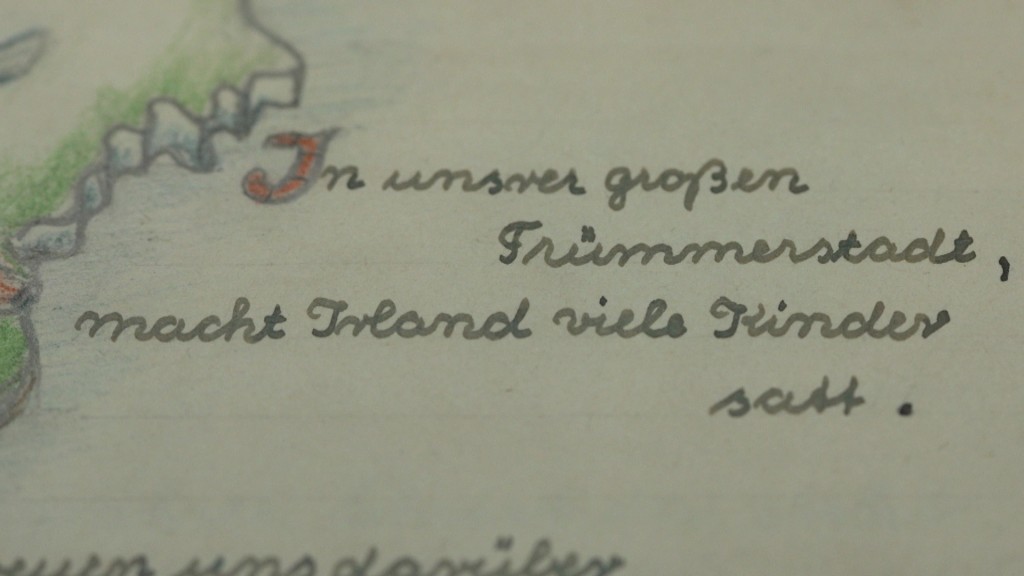 In unsrer großen
Trümmerstadt,
macht Irland viele Kinder
satt.
uns darüber